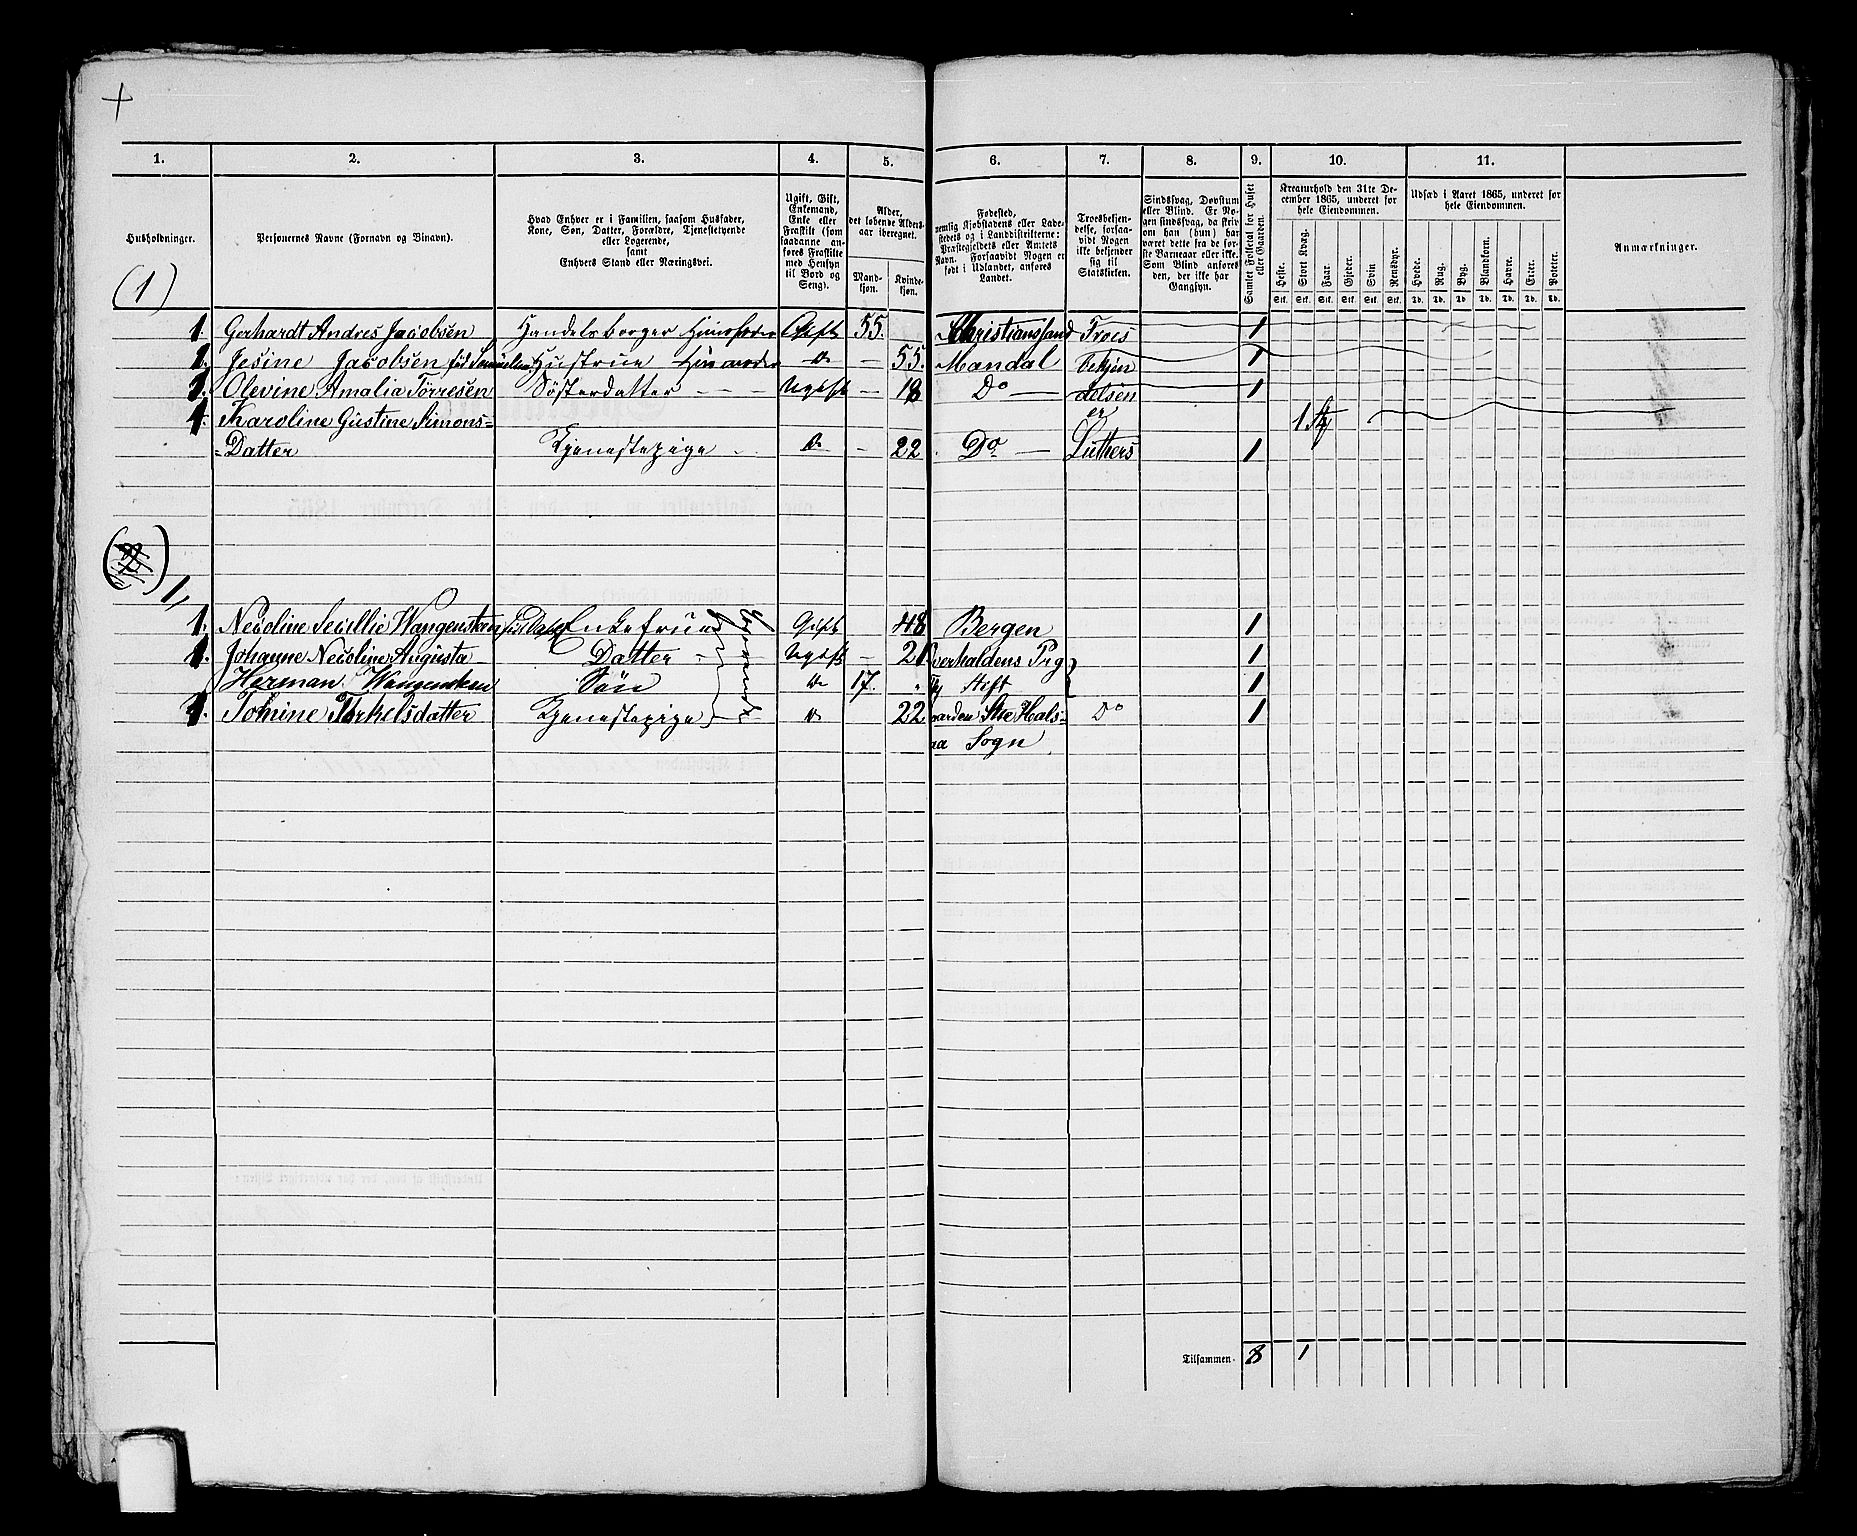 1. 2. 3. 4. 5. 6. 7. 8. 9. 10. 11.
Husholdninger.
Personernes Navne (Fornavn og Binavn).
Hvad Enhver er i Familien, saasom Husfader,
Kone, Søn, Datter, Forældre, Tjenestetyende
eller Logerende,
samt
Enhvers Stand eller Næringsvei.
Ugift, Gift,
Enkemand,
Enke eller
Fraskilt (som
saadanne an-
føres Fraskilte
med Hensyn
til Bord og
Seng).
Alder,
det løbende Alders-
aar iberegnet.
Mand-
kjøn.
Kvinde-
kjøn.
Fødested,
nemlig Kjøbstadens eller Lade-
stedets og i Landdistrikterne:
Præstegjeldets eller Amtets
Navn. Forsaavidt Nogen er
født i Udlandet, anføres
Landet.
Troesbekjen-
delse, forsaa-
vidt Nogen
ikke bekjender
sig til
Statskirken.
Sindssvag, Døvstum
eller Blind. Er No-
gen sindssvag, da skriv
om han (hun) har
været dette fra de før-
ste Barneaar eller ikke.
Som Blind anføres
den, der ikke har
Gangsyn.
Samlet Folketal for Huset
eller Gaarden.
Kreaturhold den 31te De-
cember 1865, underet for
hele Eiendommen.
Heste. Stort Kvæg. Faar. Gjeder. Svin Rensdyr.
Stk. Stk. Stk. Stk. Stk. Stk.
Udsæd i Aaret 1865, underet for
hele Eiendommen.
Hvede. Rug. Byg. Blandkorn. Havre. Erter. Poteter.
Td. Td. Td. Td. Td. Td. Td.
Anmærkninger.
(1)
1. Gerhardt Andres Jacobsen Handelsborger Huusfader Gift 55. Christianssand Troes 1
1. Jesine Jacobsen Hustrue do 55. Mandal bekjen 1
1. Olevine Amalia Tørresen Søsterdatter Ugift 18 Do delsen 1
1. Karoline Gustine Simons= er 1 Stk
=Datter Tjenestepige do 22 Do Luthers 1
1. Necoline Secillie Wangensten Enkefrue Gift 48 Bergen 1
1. Johanne Necoline Augusta Datter Ugift 21. Overhaldens Prg 1
Herman Wangensten Søn do 17. Stift 1
1. Tomine Torkelsdatter Tjenestepige do 22 Hals= Do 1
aa Sogn
Tilsammen. 8 1